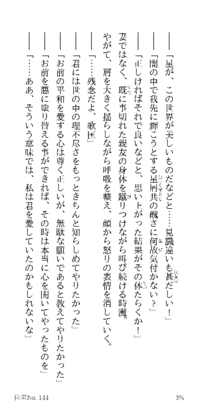 ――「星が、この世界が美しいものだなどと……見識違いも甚だしい！」
――「闇の中で我先に輝こうとする星屑共の醜さに何故気付かない？」
――「正しければそれで良いなどと、思い上がった結果がその体たらくか！」
妻ではなく、既に事切れた親友の身体を蹴りつけながら叫び続ける時灘。
やがて、肩を大きく揺らしながら呼吸を整え、顔から怒りの表情を消していく。
――「……残念だよ、歌匡」
――「君には世の中の理不尽さをもっときちんと知らしめてやりたかった」
――「お前の平和を愛する心は尊く正しいが、無駄な願いであると教えてやりたかった」
――「お前を悪に塗り替える事ができれば、その時は本当に心を開いてやったものを」
――「……ああ、そういう意味では、私は君を愛していたのかもしれないな」
位置No. 144
3%